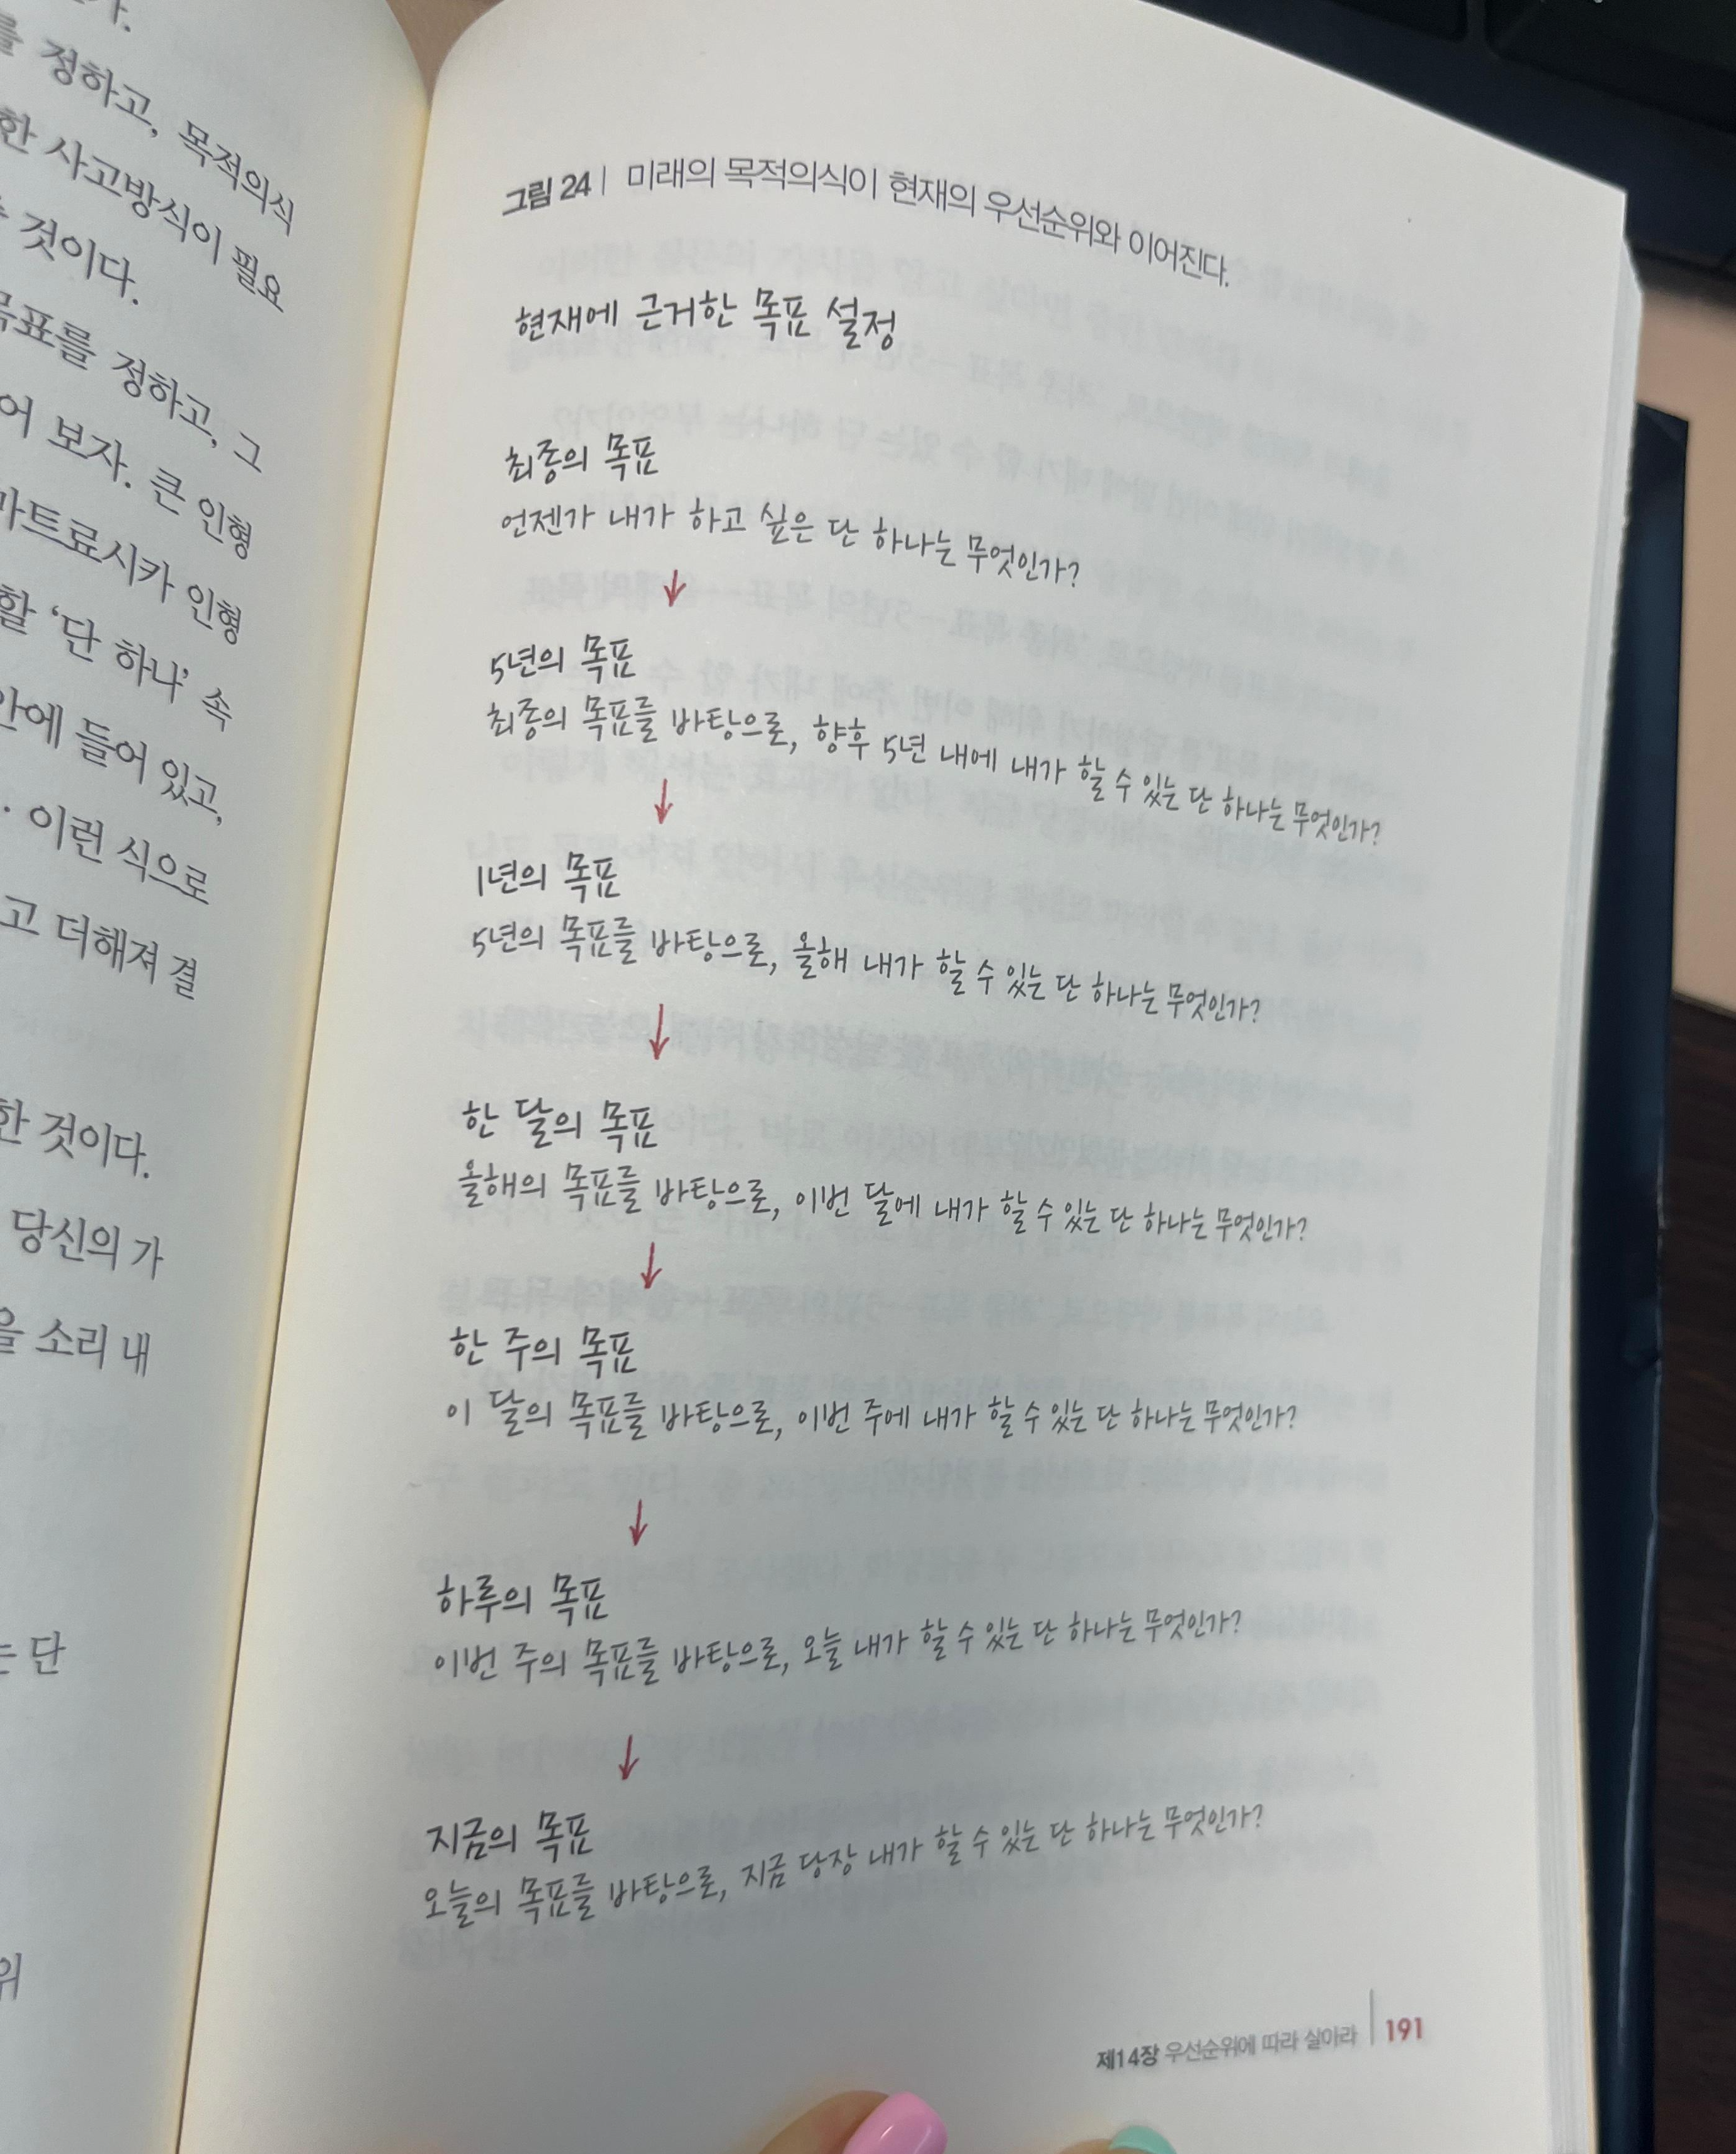 를 정하고, 목적의식
한 사고방식이 필요
것이다.
목표를 정하고, 그
어 보자. 큰 인형
마트료시카 인형
할 ‘단 하나’ 속
안에 들어 있고,
. 이런 식으로
고 더해져 결
한 것이다.
당신의 가
을 소리 내
는 단
위
그림 24 | 미래의 목적의식이 현재의 우선순위와 이어진다.
현재에 근거한 목표 설정
최종의 목표
언젠가 내가 하고 싶은 단 하나는 무엇인가?
↓
5년의 목표
최종의 목표를 바탕으로, 향후 5년 내에 내가 할 수 있는 단 하나는 무엇인가?
↓
1년의 목표
5년의 목표를 바탕으로, 올해 내가 할 수 있는 단 하나는 무엇인가?
↓
한 달의 목표
올해의 목표를 바탕으로, 이번 달에 내가 할 수 있는 단 하나는 무엇인가?
↓
한 주의 목표
이 달의 목표를 바탕으로, 이번 주에 내가 할 수 있는 단 하나는 무엇인가?
↓
하루의 목표
이번 주의 목표를 바탕으로, 오늘 내가 할 수 있는 단 하나는 무엇인가?
↓
지금의 목표
오늘의 목표를 바탕으로, 지금 당장 내가 할 수 있는 단 하나는 무엇인가?
제14장 우선순위에 따라 살아라 | 191